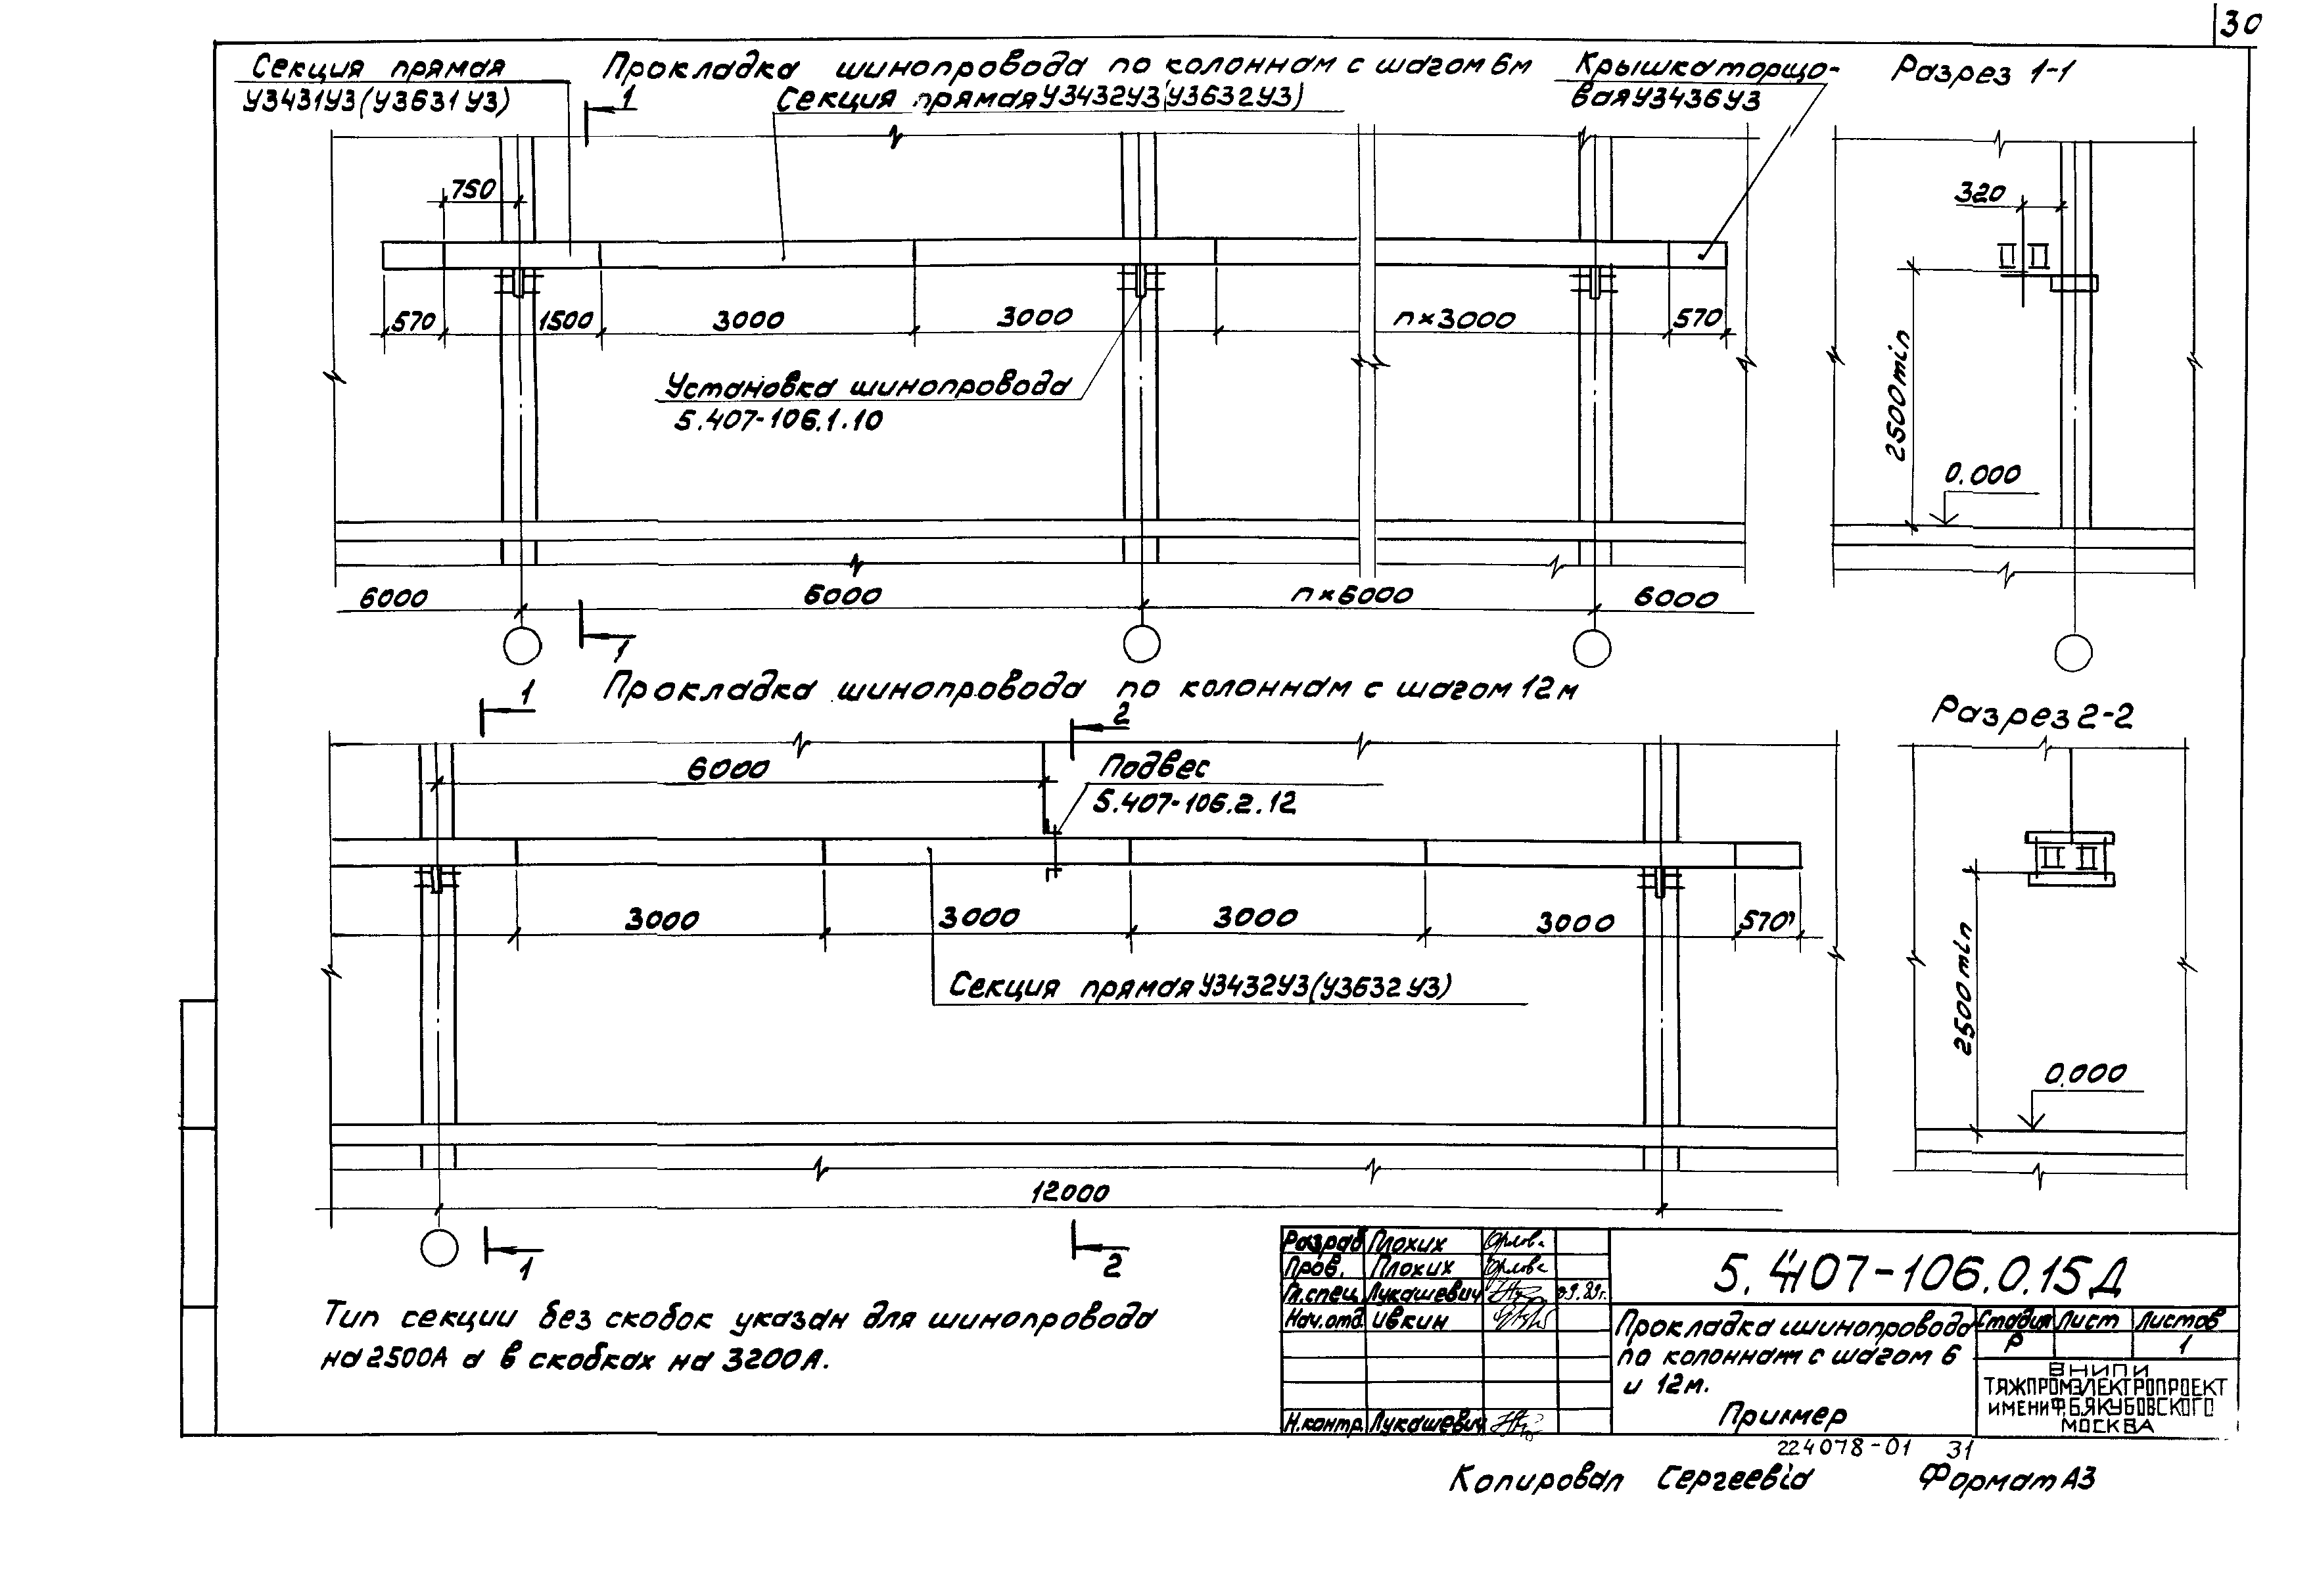 30
Секция прямая
У3431У3(У3631У3)
Прокладка шинопровода по колоннам с шагом 6м
Секция прямая У3432У3(У3632У3)
Крышка торцо-
вая У3436У3
Разрез 1-1
1
750
320
570
1500
3000
3000
n×3000
570
Установка шинопровода
5.407-106.1.10
2500min
0.000
6000
6000
n×6000
6000
1
Прокладка шинопровода по колоннам с шагом 12м
1
2
Разрез 2-2
6000
Подвес
5.407-106.2.12
3000
3000
3000
3000
570
Секция прямая У3432У3(У3632У3)
2500min
0.000
12000
1
2
Тип секции без скобок указан для шинопровода
на 2500А а в скобках на 3200А.
Разраб. Плохих
Пров. Плохих
Гл.спец. Лукашевич
Нач.отд. Ивкин
Н.контр. Лукашевич
5.407-106.0.15Д
Прокладка шинопровода
по колоннам с шагом 6
и 12м.
Пример
Стадия Лист Листов
Р 1
ВНИПИ
ТЯЖПРОМЭЛЕКТРОПРОЕКТ
ИМЕНИ Ф.Б.ЯКУБОВСКОГО
МОСКВА
224078-01 31
Копировал Формат А3